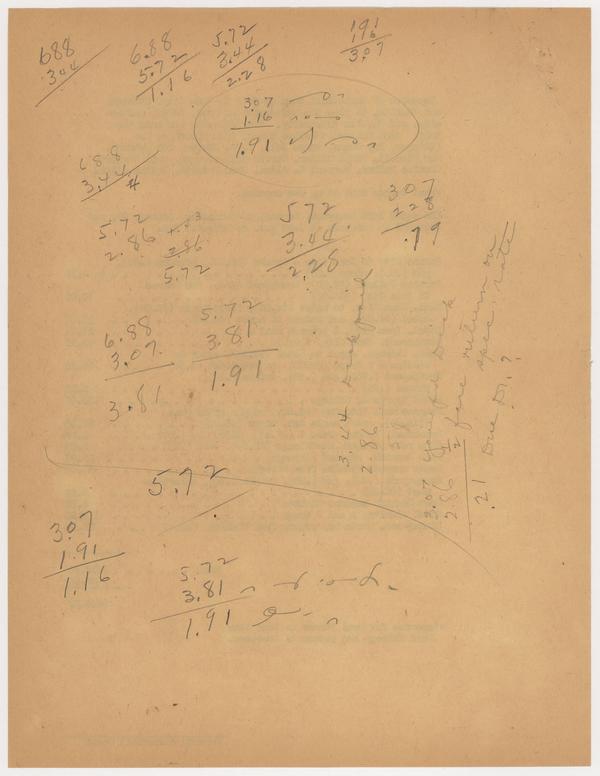 688
3.44
6.88
5.72
1.16
5.72
3.44
2.28
191
116
3.07
3.07
1.16
1.91
688
3.44
5.72
2.86
2.86
5.72
572
3.44
2.28
307
228
.79
6.88
3.07
3.81
5.72
3.81
1.91
3.44 Dick paid
2.86
58
3.07 you & Dick
2.86 1/2 fare return on
spec. rate
.21 Due D.?
5.72
3.07
1.91
1.16
5.72
3.81
1.91